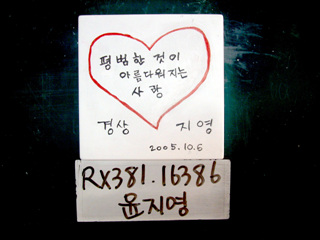 평범한 것이
아름다워지는
사랑
경상 지영
2005.10.6
RX381.16386
윤지영